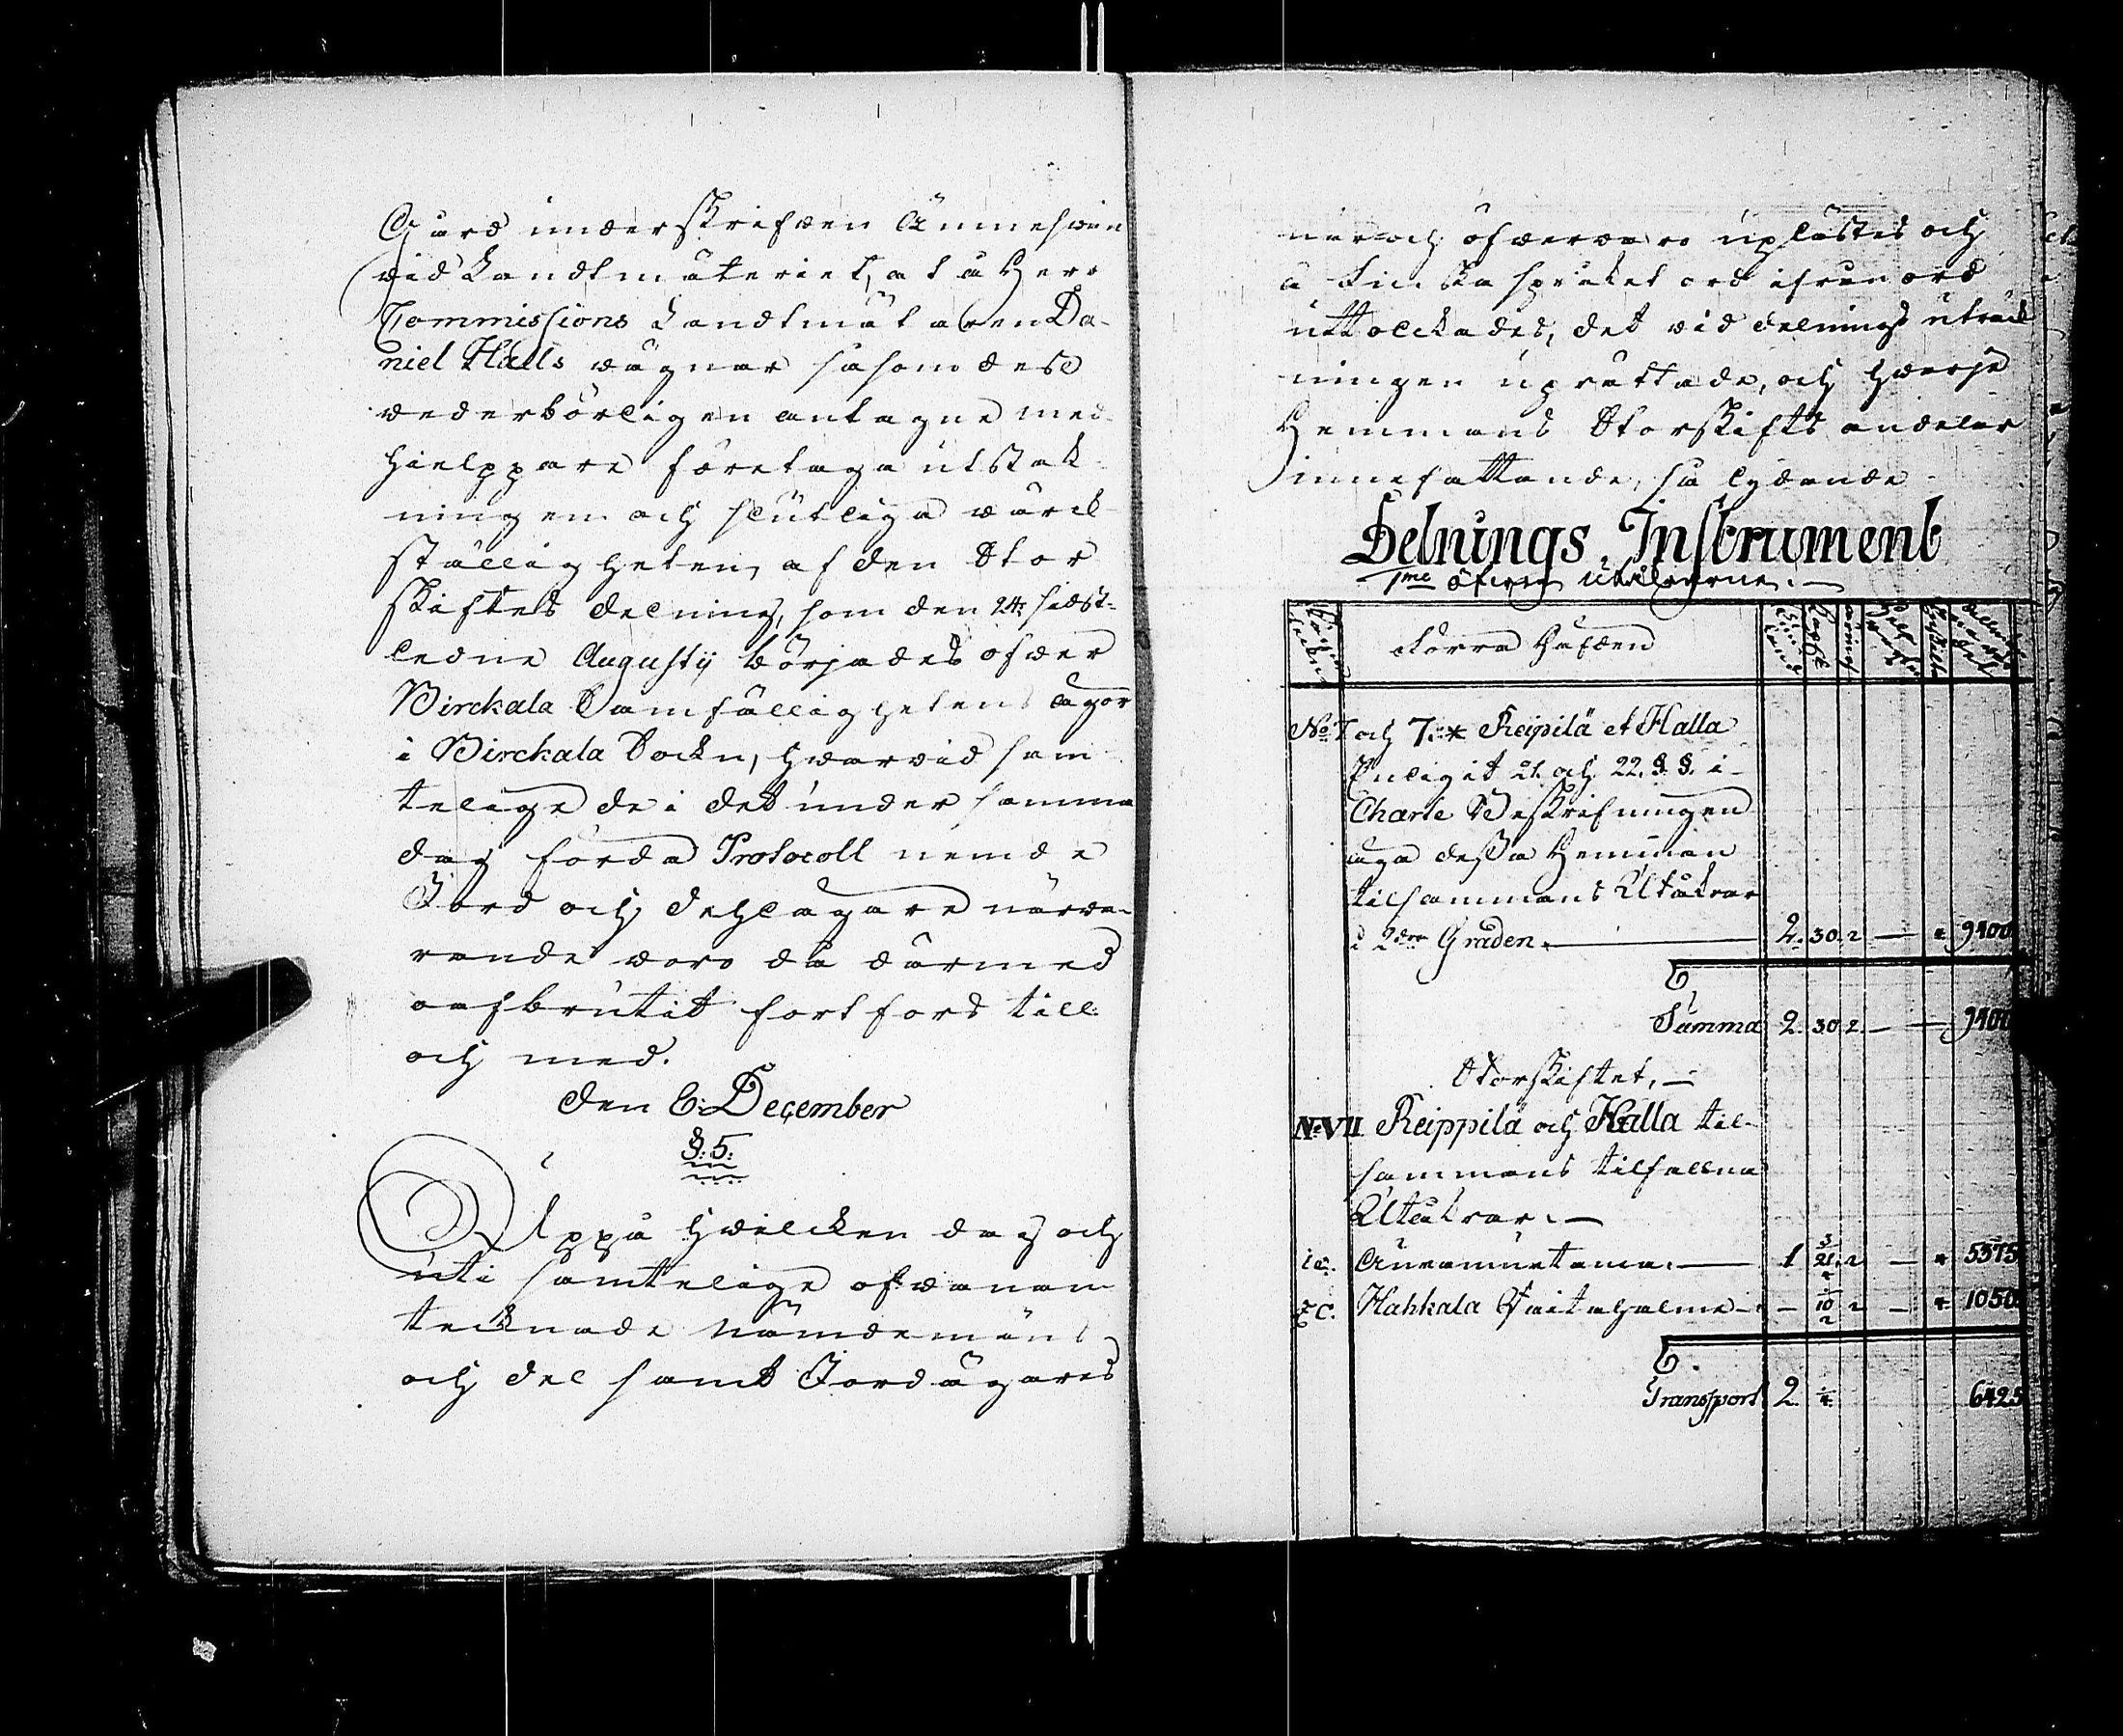 Gård underskrifven Ämnesven
vid Landtmäteriet, at å Herr
Commissions Landtmätaren Da-
niel Halls vägnar såsom dess
vederbörligen antagne med-
hielppare företaga utstak-
ningen och slutliga värck-
ställigheten, af den Stor
skiftes delning, som den 24: sidst-
ledne Augustij börjades öfver
Birckala Samfällighetens ägor
i Birckala Sockn, hvarvid sam-
telige de i det under samma
dag förda Protocoll nemde
Jord och dehlägare närva-
rande voro då därmed
oafbrutit fortfors till
och med.
den 6: December
§: 5:
Uppå hvilcken dag och
uti samtelige ofvanan-
tecknade Nämdemäns
och del samt Jordägares
närvaro uplästes och
å Finska språket ord ifrån ord
uttolckades, det vid delnings uträck
ningen uprättade, och hvarje
Hemmans Storskifts andelar
innefattande, så lydande
Delnings Instrument
1mo öfver Utåkrarne.
Förra Häfden
No 7 och 7:* Reipilä et Halla
Enligit 21. och 22. §. §. i
Charte Beskrifningen
äga dessa Hemman
tilsammans Utåkrar
i 2dra Graden. 2. 30. 2 — 9400
Summa 2. 30. 2. — 9400
Storskiftet.
No VII Reippilä och Halla til-
sammans tilfallna
Utåkrar.
1 21. 2 — 5375
Hahkala — 10 2 — 1050
Transport 2. 6425